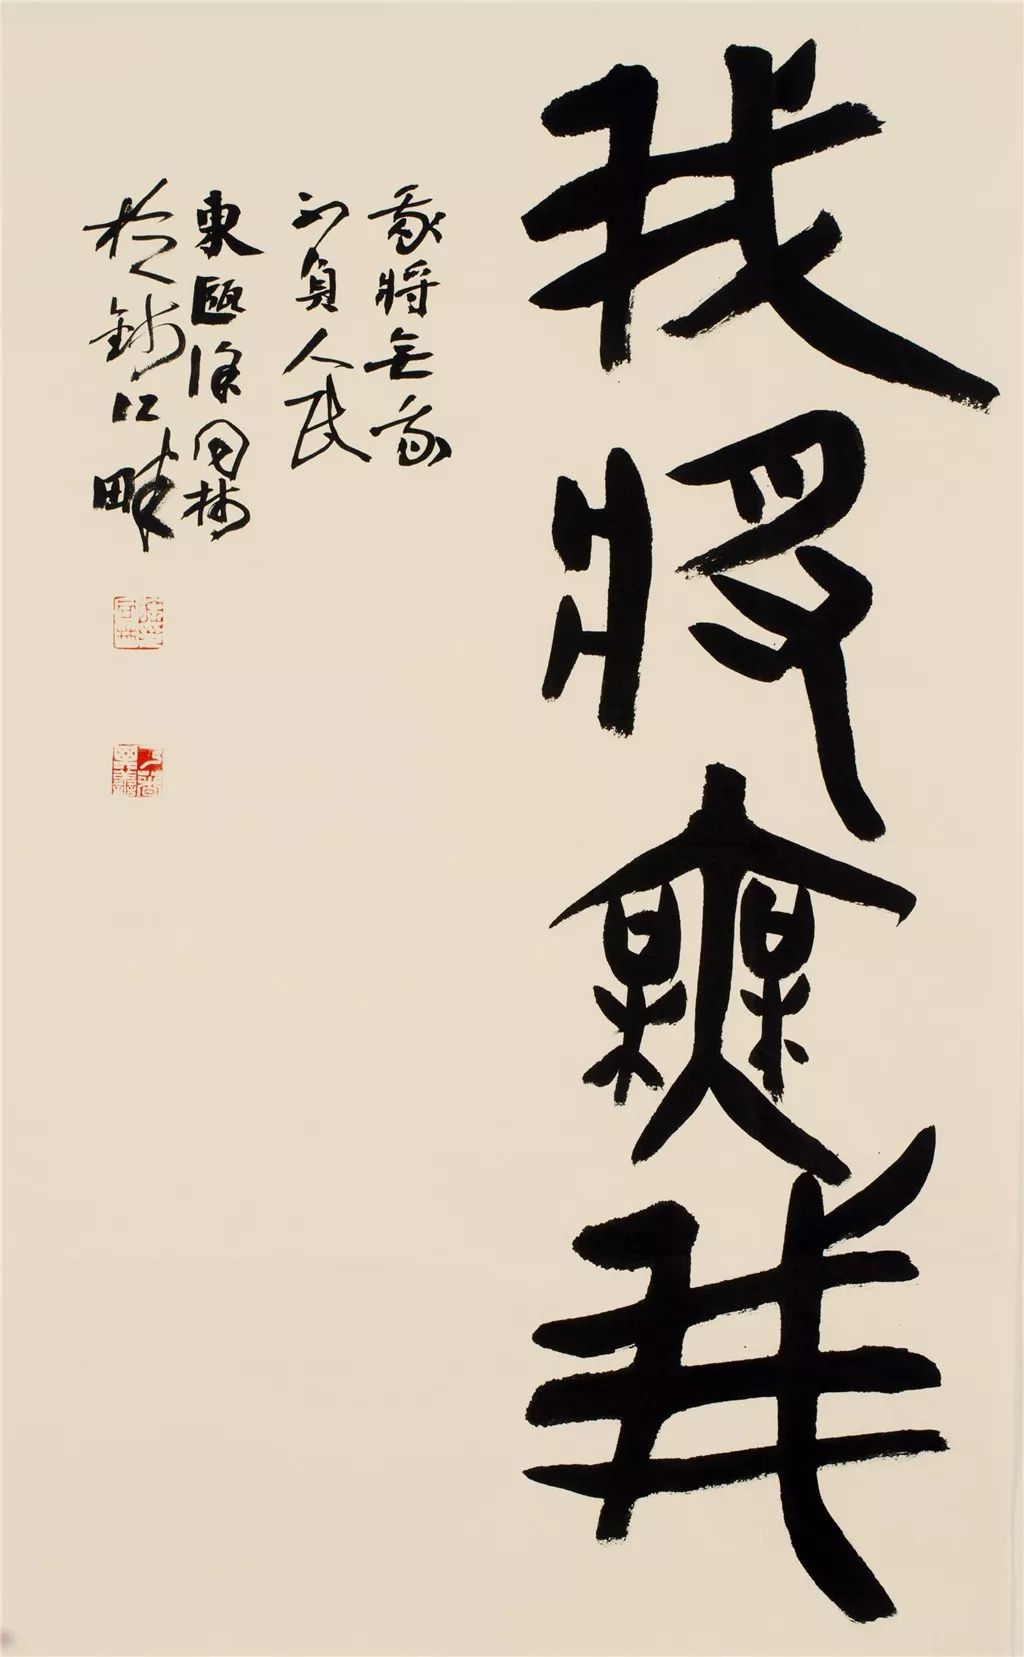 我將無我
我將無我
不負人民
東甌徐同林
於錢江畔